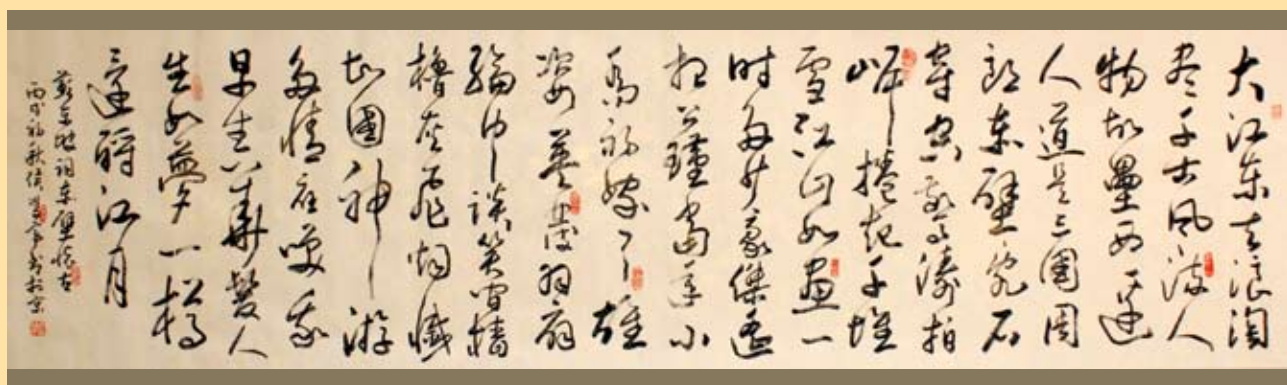 大江东去浪淘
尽千古风流人
物故壘西边
人道是三國周
郎赤壁乱石
穿空惊涛拍
岸捲起千堆
雪江山如画一
时多少豪傑遥
想公瑾当年小
乔初嫁了雄
姿英发羽扇
纶巾谈笑间樯
橹灰飛烟滅
故國神游
多情应笑我
早生華髮人
生如夢一樽
還酹江月
蘇东坡词赤壁怀古
丙戌初秋书於京